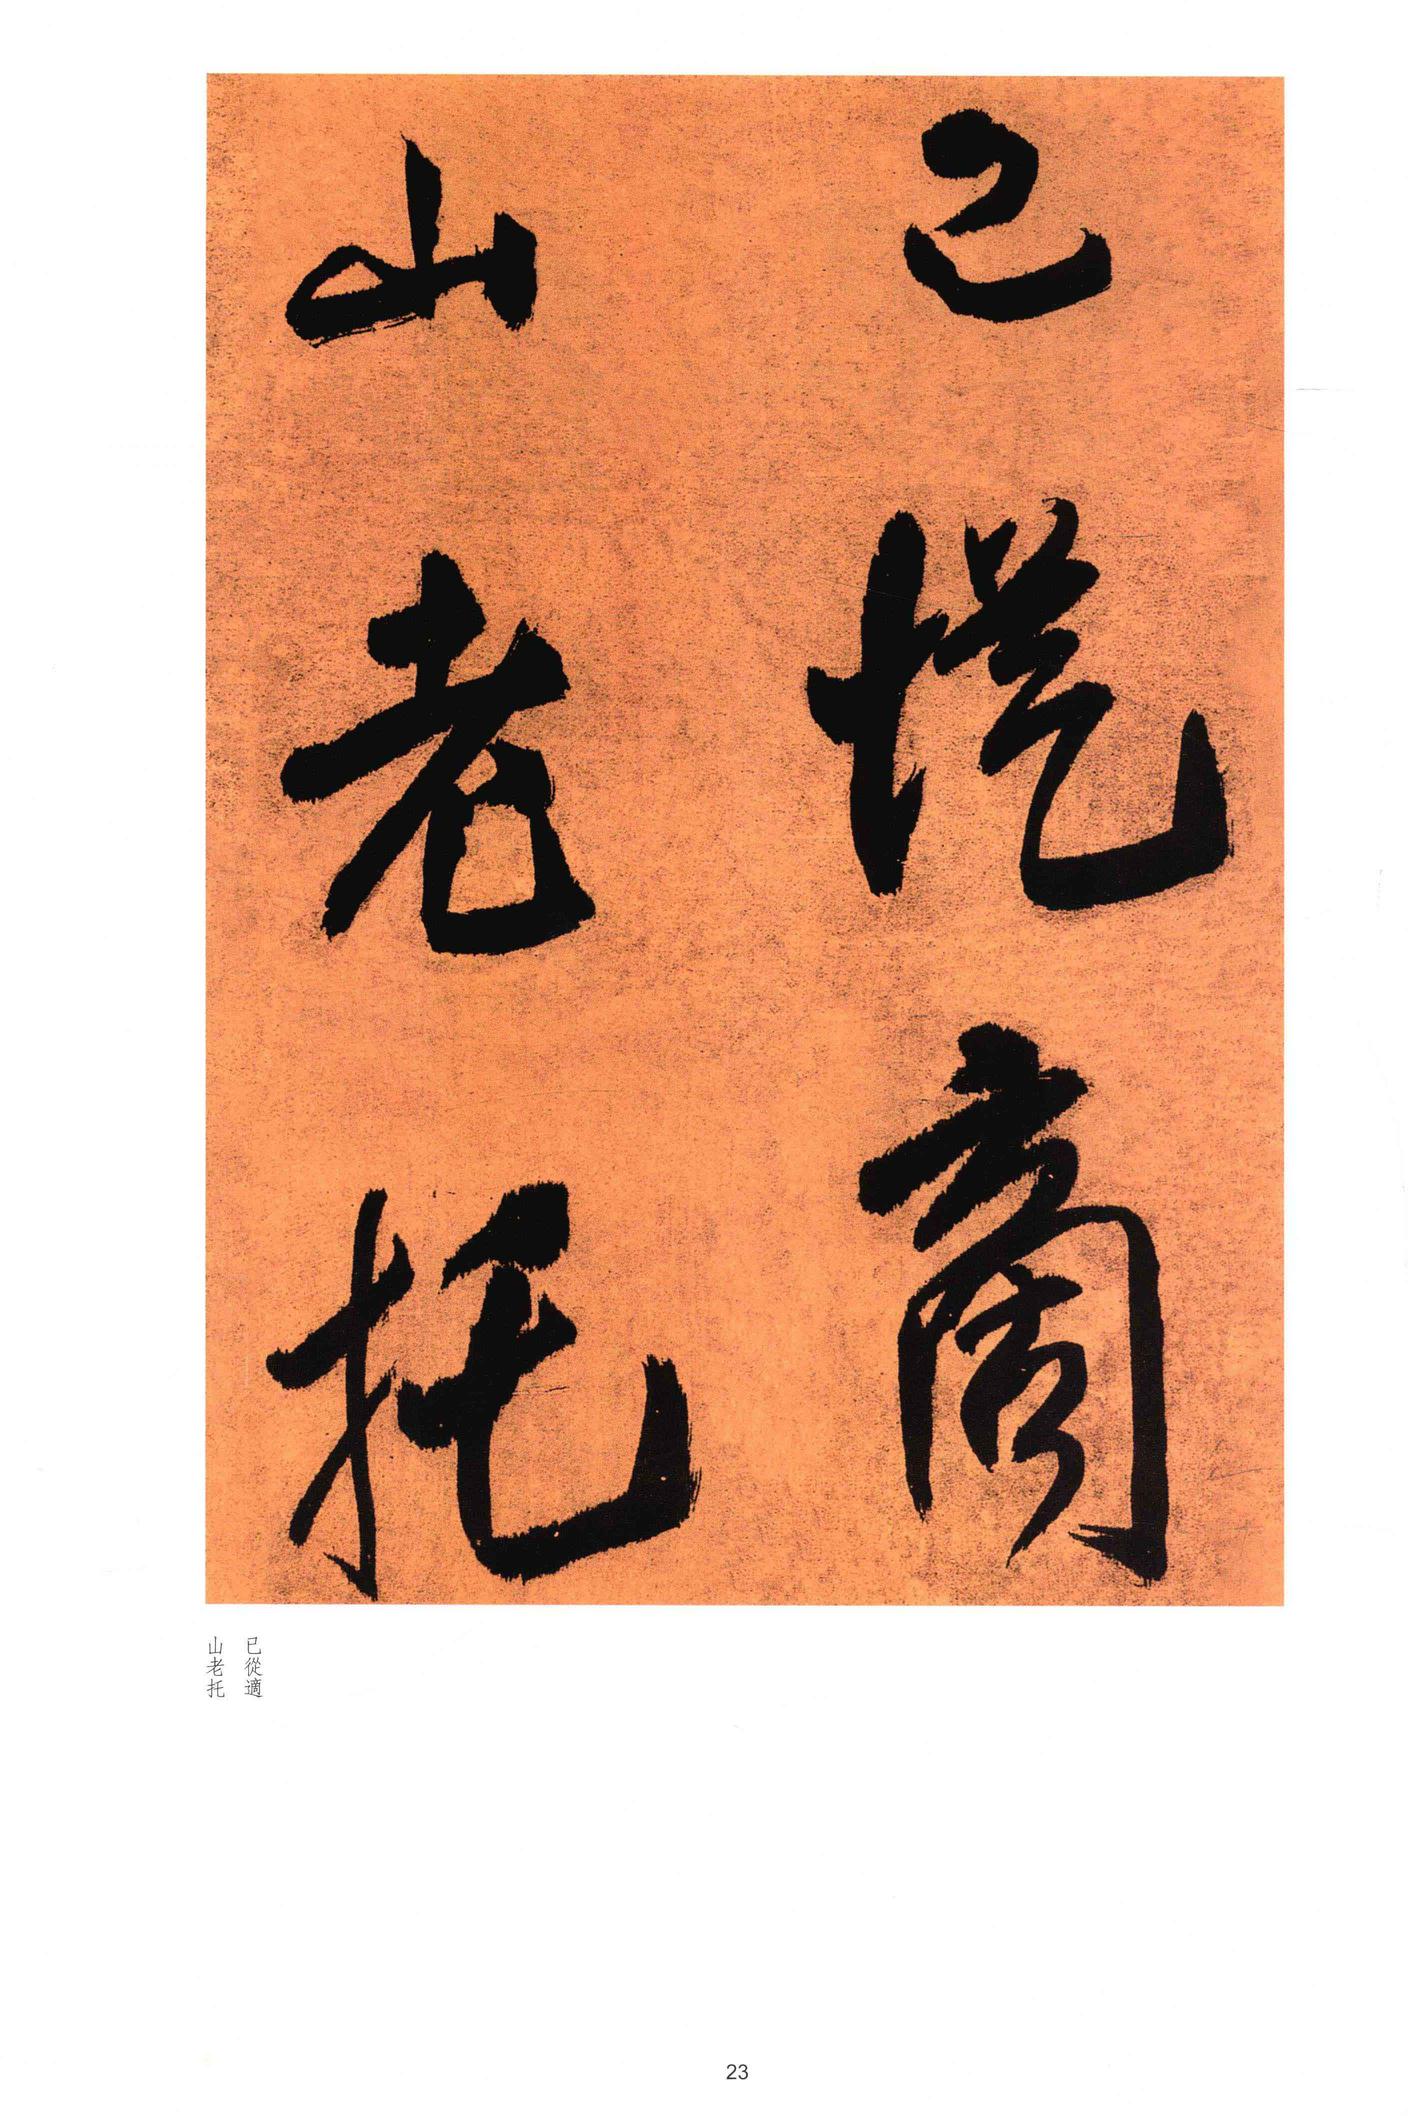 已從適
山老托
已從適
山老托
23